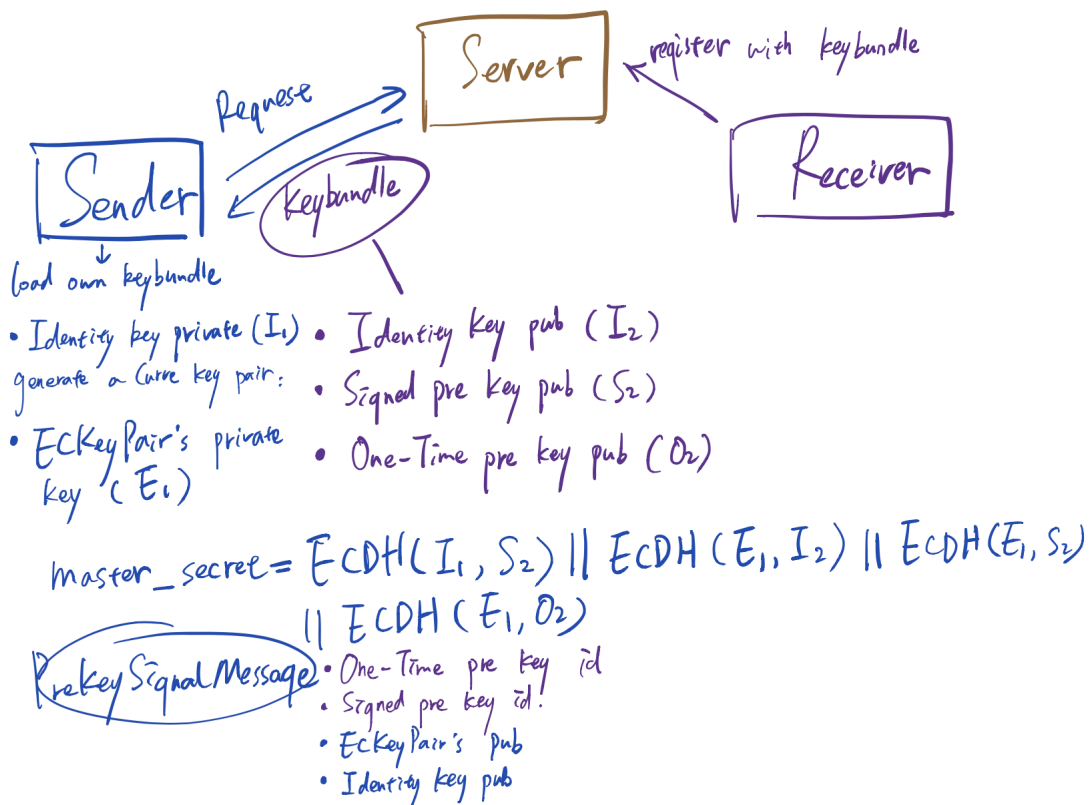 Server
register with keybundle
Request
Receiver
Sender
keybundle
load own keybundle
• Identity key private (I₁)
generate a Curve key pair:
• ECKeyPair's private
key (E₁)
• Identity Key pub (I₂)
• Signed pre key pub (S₂)
• One-Time pre key pub (O₂)
master_secret = ECDH(I₁, S₂) || ECDH(E₁, I₂) || ECDH(E₁, S₂)
|| ECDH(E₁, O₂)
PreKeySignalMessage
• One-Time pre key id
• Signed pre key id.
• ECKeyPair's pub
• Identity key pub